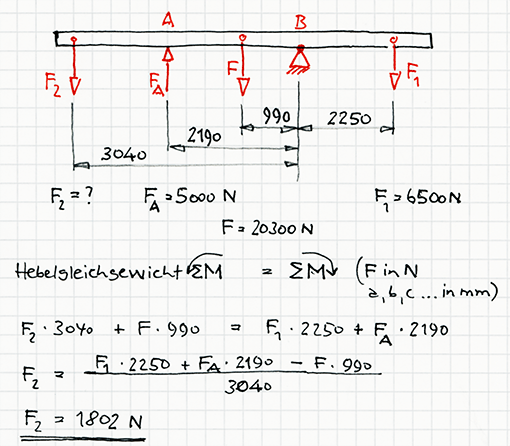 A B
F₂ F_A F F₁
990 2250
2190
3040
F₂ = ? F_A = 5000 N F₁ = 6500 N
F = 20300 N
Hebelgleichgewicht ΣM = ΣM (F in N
a, b, c ... in mm)
F₂ · 3040 + F · 990 = F₁ · 2250 + F_A · 2190
F₂ = F₁ · 2250 + F_A · 2190 − F · 990
3040
F₂ = 1802 N